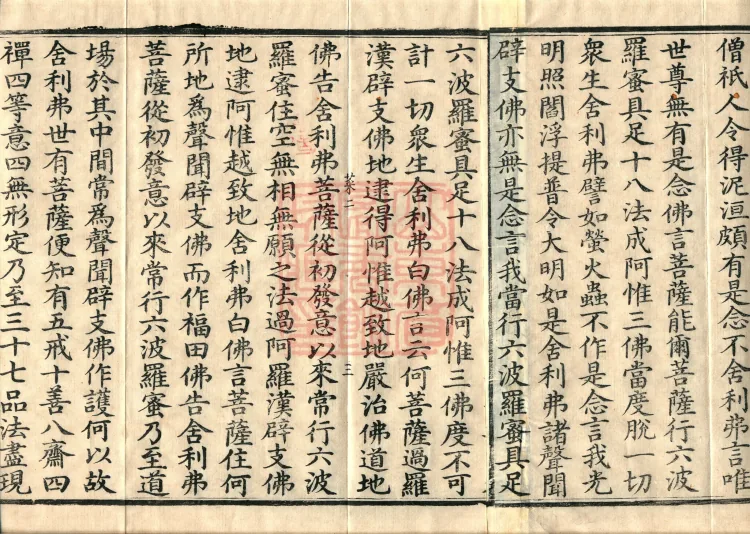 僧祇人令得泥洹頗有是念不舍利弗言唯
世尊無有是念佛言菩薩能爾菩薩行六波
羅蜜具足十八法成阿惟三佛當度脫一切
衆生舍利弗譬如螢火蟲不作是念言我光
明照閻浮提普令大明如是舍利弗諸聲聞
辟支佛亦無是念言我當行六波羅蜜具足
六波羅蜜具足十八法成阿惟三佛度不可
計一切衆生舍利弗白佛言云何菩薩過羅
漢辟支佛地逮得阿惟越致地嚴治佛道地
菜二 三
佛告舍利弗菩薩從初發意以來常行六波
羅蜜住空無相無願之法過阿羅漢辟支佛
地逮阿惟越致地舍利弗白佛言菩薩住何
所地為聲聞辟支佛而作福田佛告舍利弗
菩薩從初發意以來常行六波羅蜜乃至道
場於其中間常為聲聞辟支佛作護何以故
舍利弗世有菩薩便知有五戒十善八齋四
禪四等意四無形定乃至三十七品法盡現